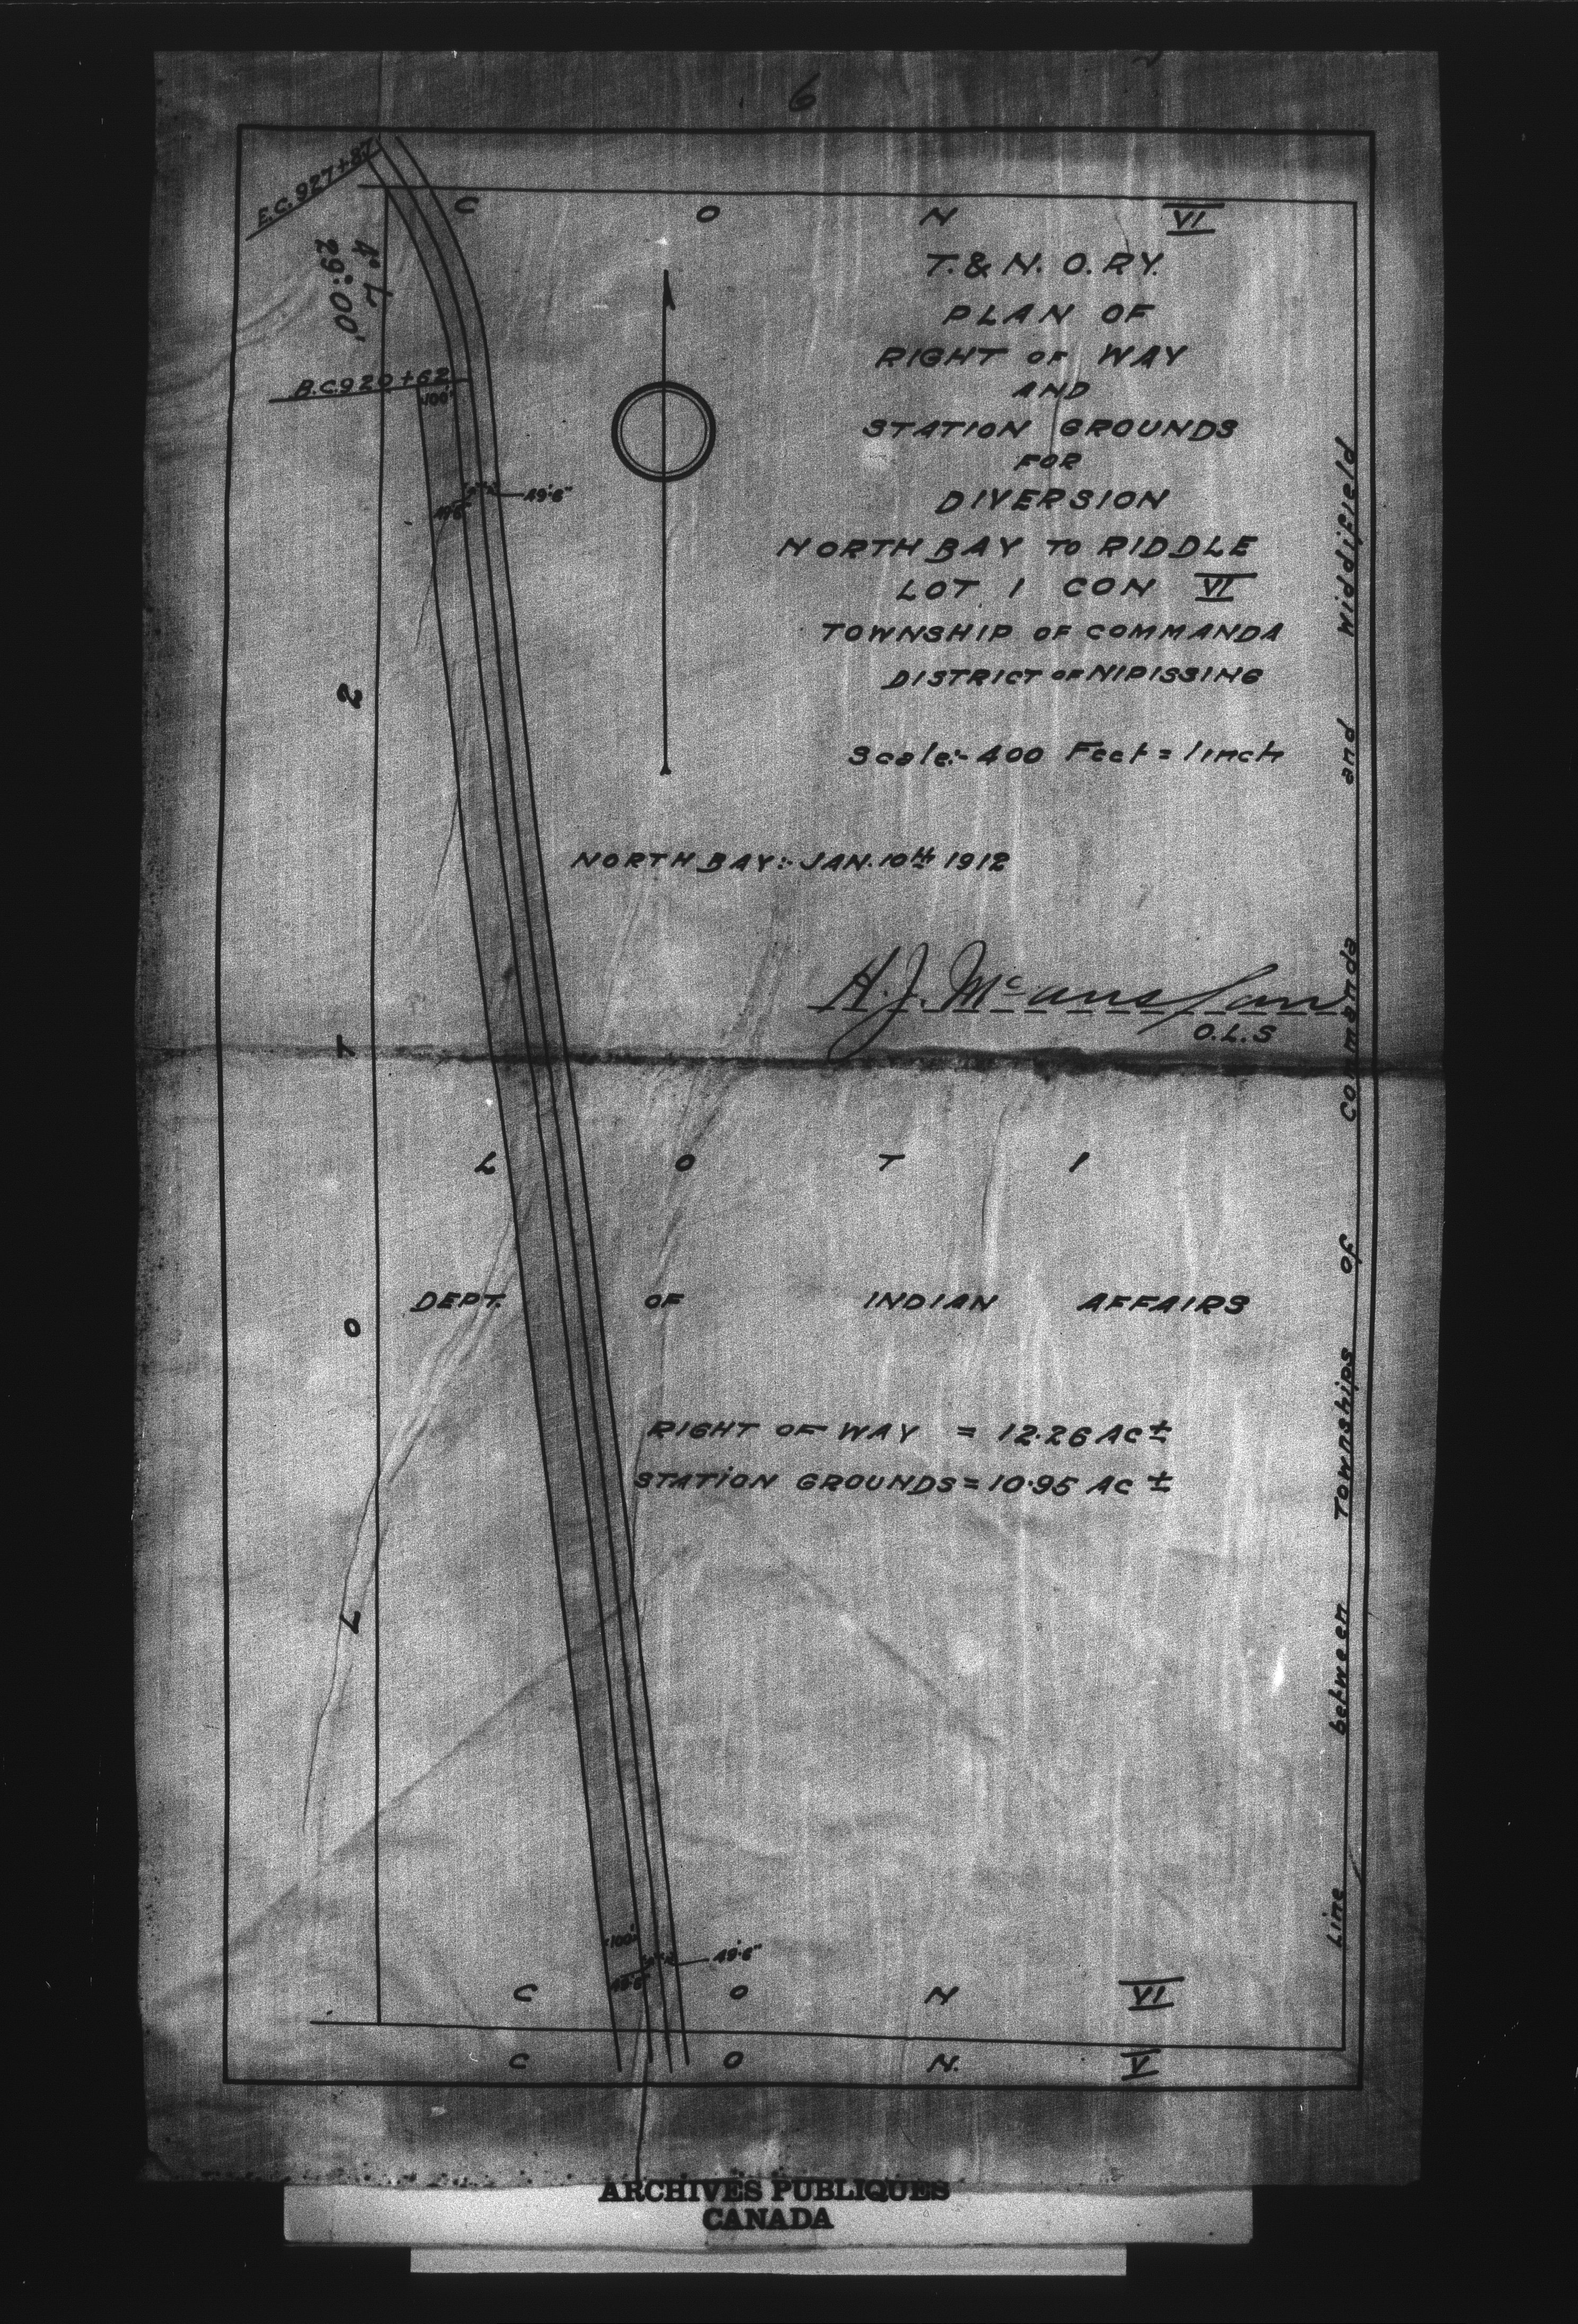 6
E.C. 927+87
C O N VI
4° L
29°:00'
T. & N. O. RY.
PLAN OF
RIGHT OF WAY
AND
STATION GROUNDS
FOR
DIVERSION
NORTH BAY TO RIDDLE
LOT 1 CON VI
TOWNSHIP OF COMMANDA
DISTRICT OF NIPISSING
Scale:- 400 Feet = 1 inch
B.C. 920+62
100'
49'6"
49'6"
NORTH BAY:- JAN. 10th 1912
H. J. McAuslan
O.L.S
LOT 2
LOT 1
DEPT. OF INDIAN AFFAIRS
RIGHT OF WAY = 12.26 Ac ±
STATION GROUNDS = 10.95 Ac ±
Line between Townships of Commanda and Widdifield
100'
49'6"
49'6"
C O N VI
C O N. V
ARCHIVES PUBLIQUES
CANADA